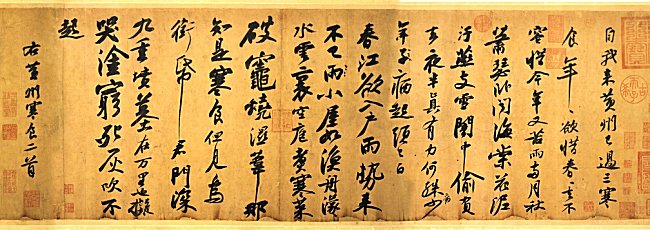 自我來黃州已過三寒
食年〻欲惜春〻去不
容惜今年又苦雨兩月秋
蕭瑟卧聞海棠花泥
汙燕支雪闇中偷負
去夜半真有力何殊病少
年子病起須已白
春江欲入戶雨勢來
不已雨小屋如漁舟濛〻
水雲裏空庖煮寒菜
破竈燒濕葦那
知是寒食但見烏
銜帋君門深
九重墳墓在万里也擬
哭塗窮死灰吹不
起
右黃州寒食二首